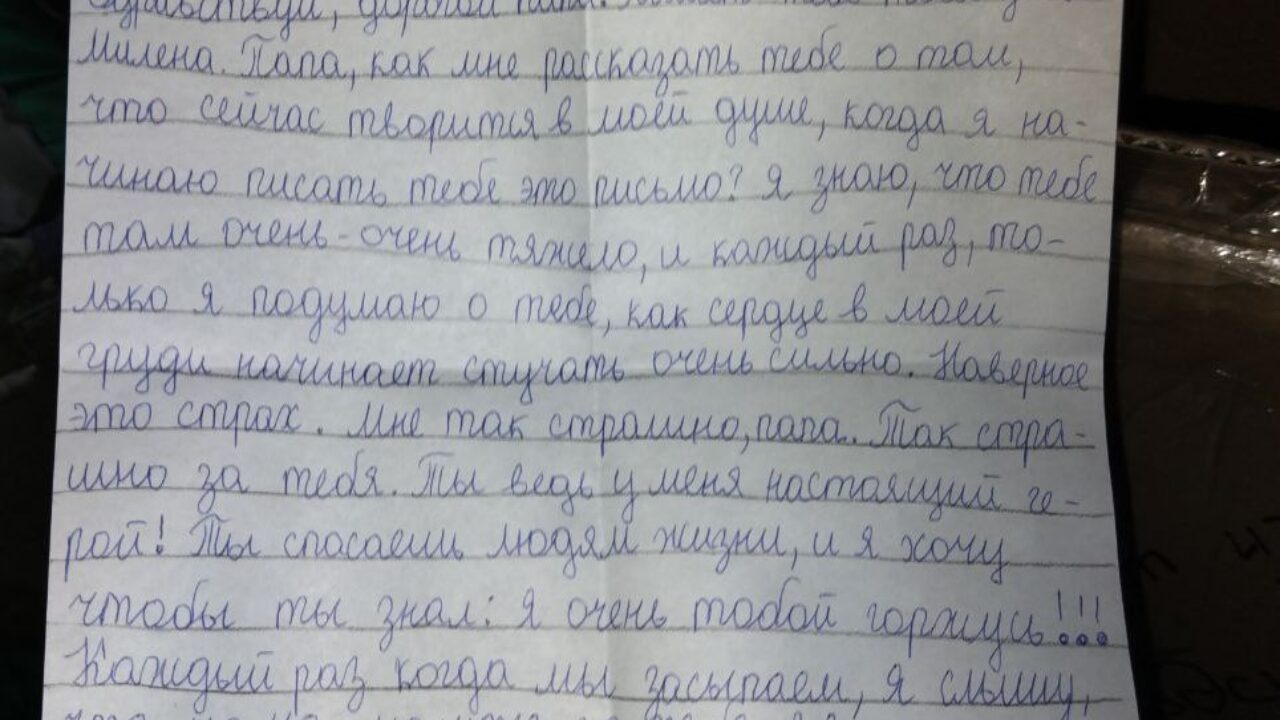 Здравствуй, дорогой папа!
Милена. Папа, как мне рассказать тебе о том,
что сейчас творится в моей душе, когда я на-
чинаю писать тебе это письмо? Я знаю, что тебе
там очень-очень тяжело, и каждый раз, то-
лько я подумаю о тебе, как сердце в моей
груди начинает стучать очень сильно. Наверное
это страх. Мне так страшно, папа. Так стра-
шно за тебя. Ты ведь у меня настоящий ге-
рой! Ты спасаешь людям жизни, и я хочу
чтобы ты знал: Я очень тобой горжусь!!!
Каждый раз когда мы засыпаем, я слышу,